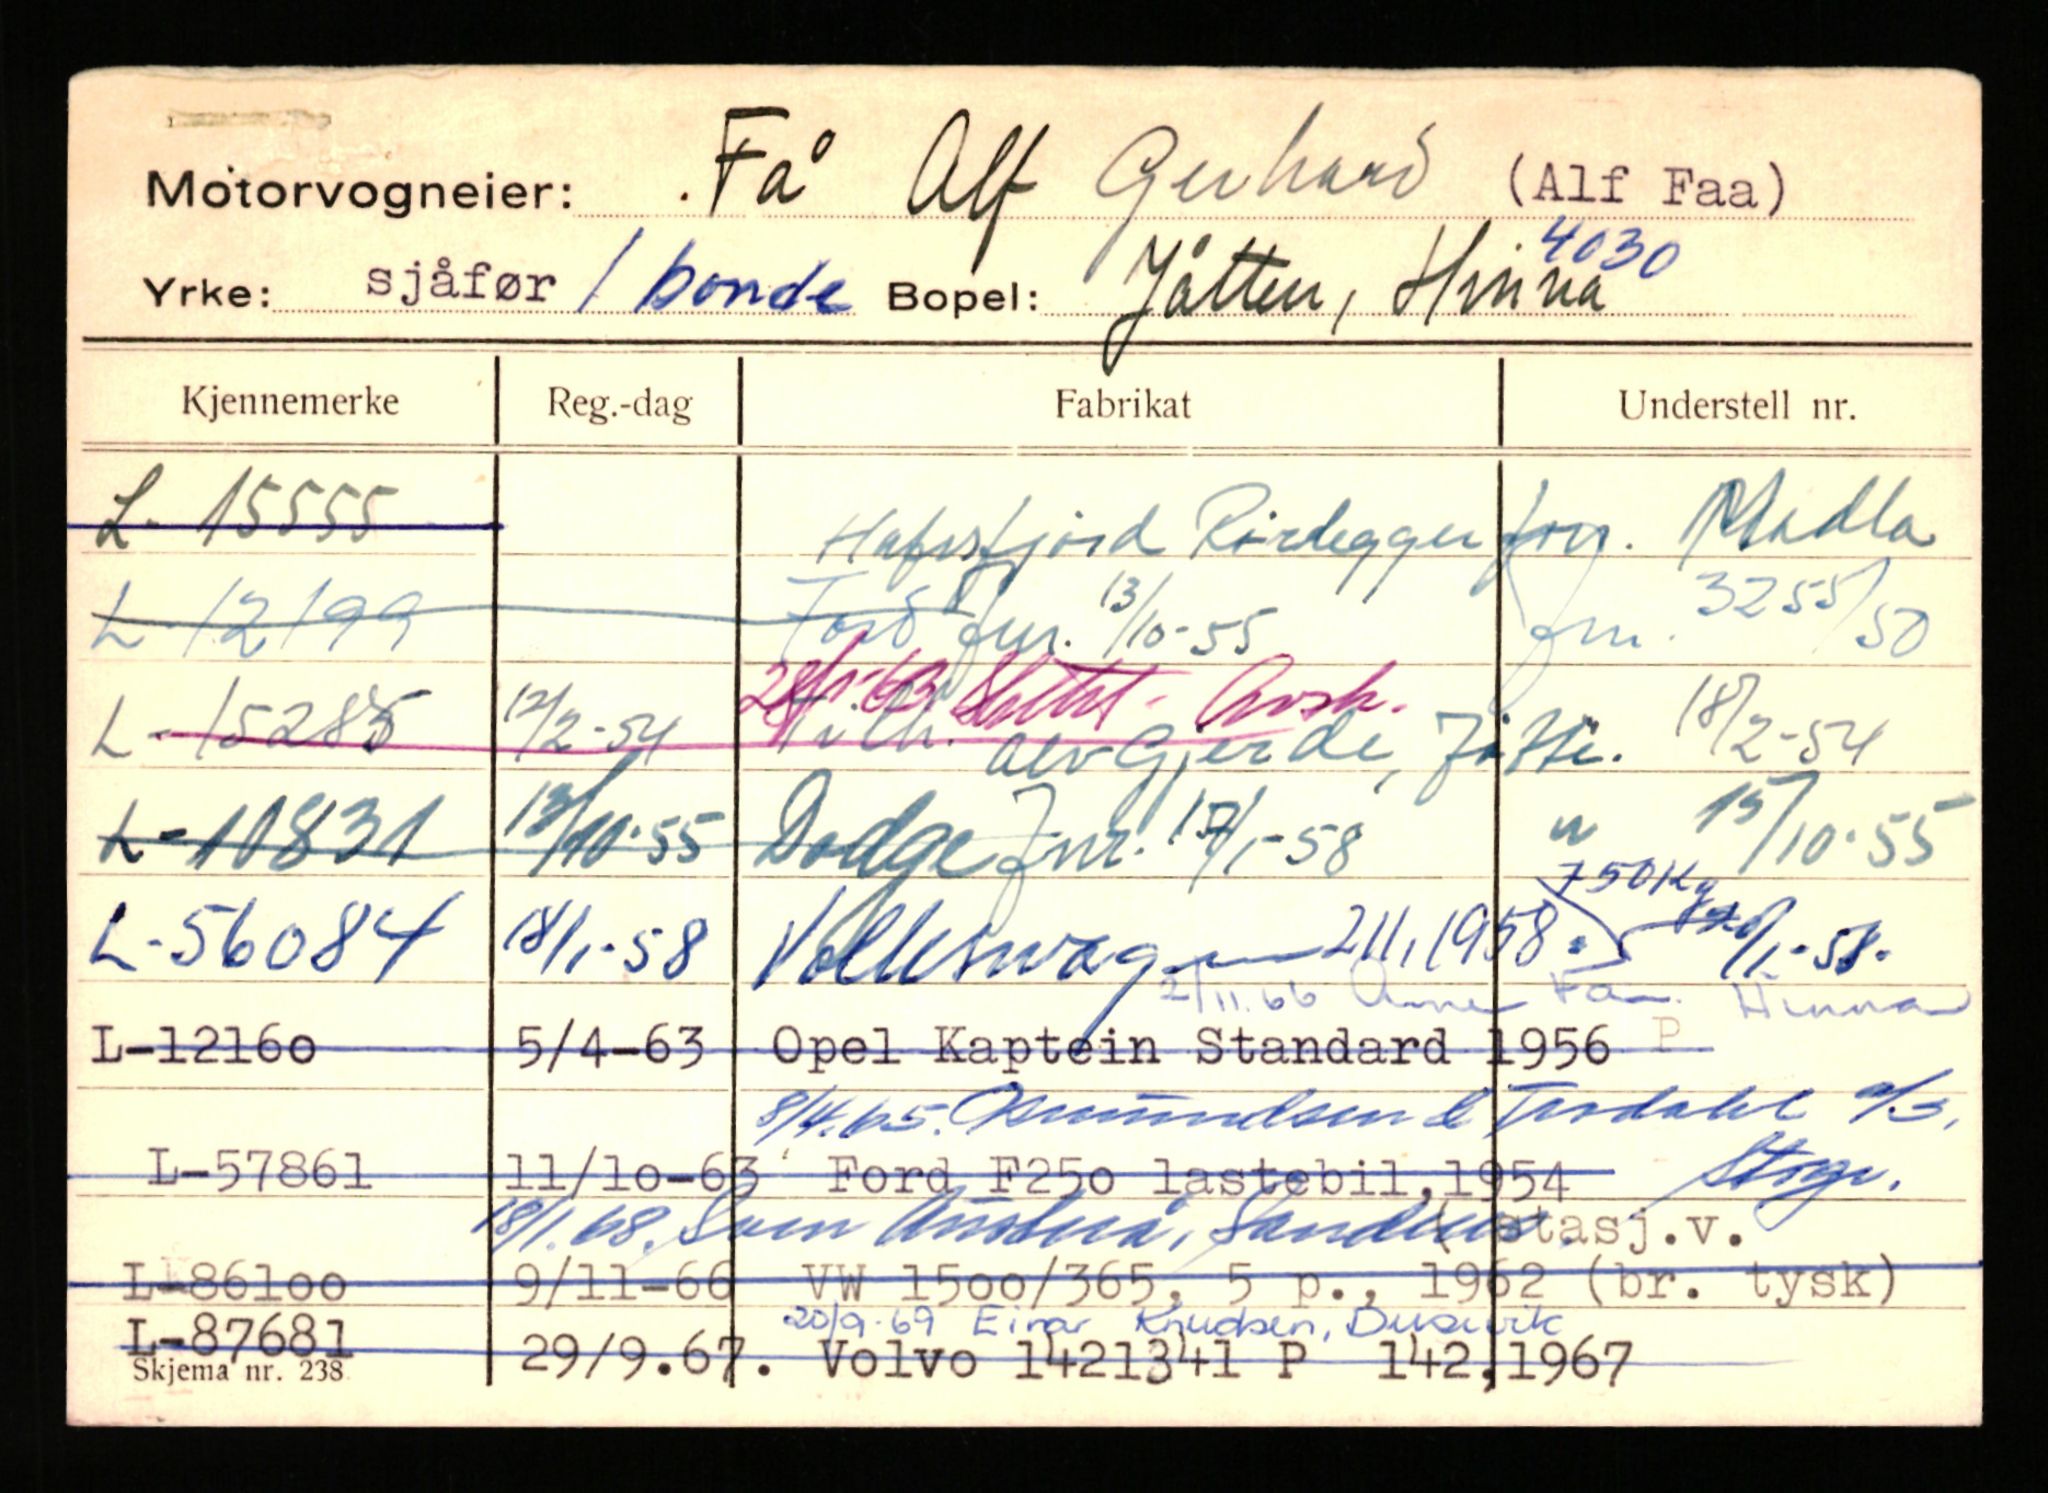 Motorvogneier: Få Alf Gerhard (Alf Faa)
Yrke: sjåfør / bonde Bopel: Jåtten, Hinna 4030
Kjennemerke Reg.-dag Fabrikat Understell nr.
L-15555 Hafrsfjord Rørlegger forr. Madla
L-12199 Ford fnr. 13/10-55 fnr. 3255/50
28/1-63 Slettet.
L-15285 12/2-54 Gjerde, Jåtte. 18/2-54
L-10831 13/10-55 Dodge fnr. 17/1-58 " 15/10-55
750 Kg
L-56084 18/1-58 Volkswagen 211, 1958. /1-58.
2/11.66 Anne Faa. Hinna
L-12160 5/4-63 Opel Kaptein Standard 1956 P
8/4.65. Osmundsen & Tordahl a/s,
L-57861 11/10-63 Ford F250 lastebil, 1954 Stvgr.
18/1.68. Sven (stasj.v.
L-86100 9/11-66 VW 1500/365, 5 p., 1962 (br. tysk)
20/9-69 Einar Knudsen, Dusavik
L-87681 29/9.67. Volvo 1421341 P 142, 1967
Skjema nr. 238